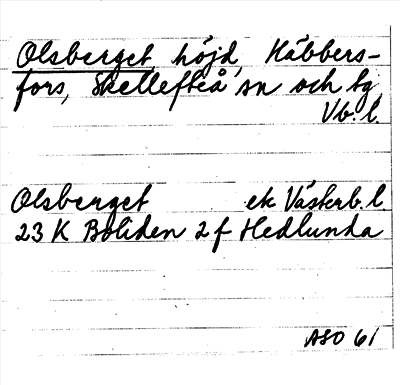 Olsberget, höjd, Häbbers-
fors, Skellefteå sn och tg
Vb. l.
Olsberget ek Västerb. l.
23 K Boliden 2 f Hedlunda
ASO 61